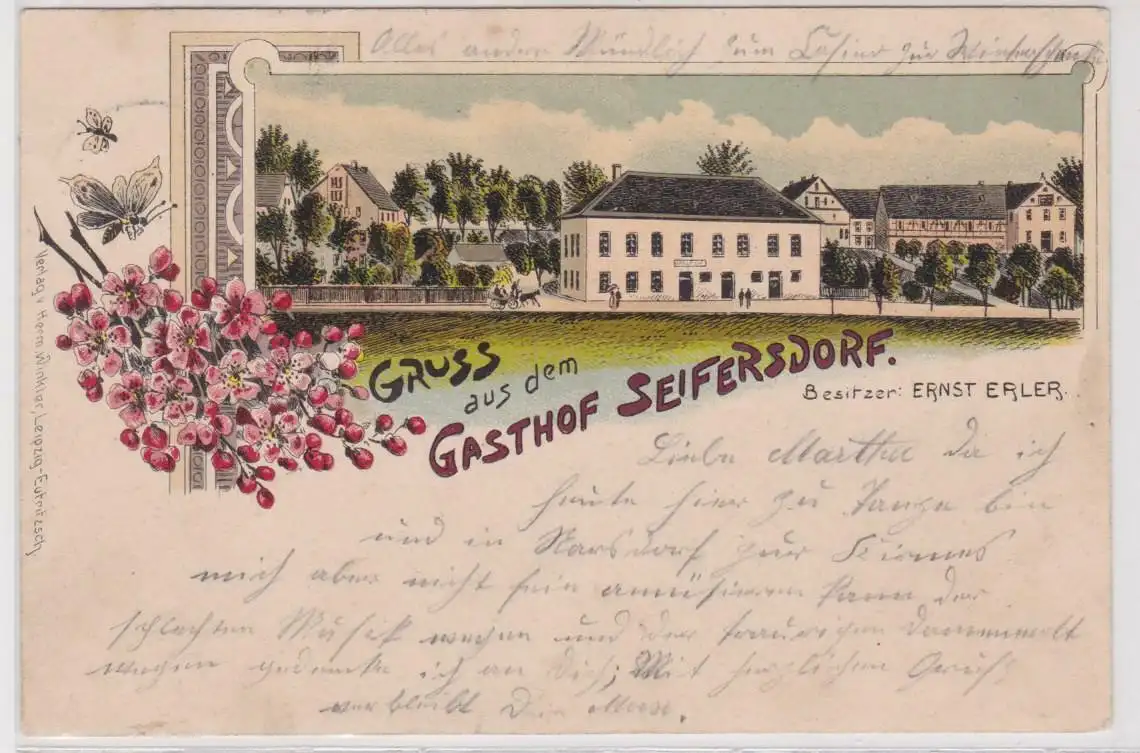 Alles andere Mündlich zum Casino zur
GRUSS
aus dem
GASTHOF SEIFERSDORF.
Besitzer: ERNST ERLER.
Verlag v. Herm. Winkler, Leipzig-Eutritzsch
Liebe Martha da ich
heute hier zu Tanze bin
und in Narsdorf zur Kirmes
mich aber nicht fein amüsieren kann der
schlechten Musik wegen und der traurigen Damenwelt
wegen gedenke ich an Dich; Mit herzlichen Gruß
verbleibt Dein Max.